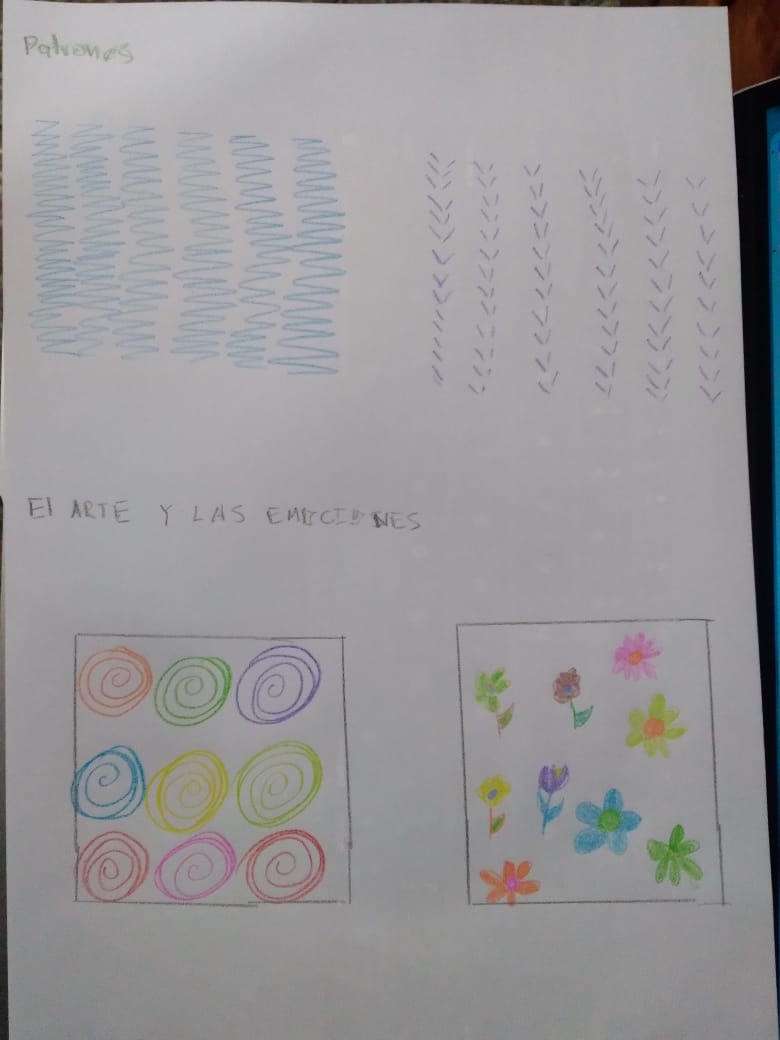 Patrones
El ARTE Y LAS EMOCIONES